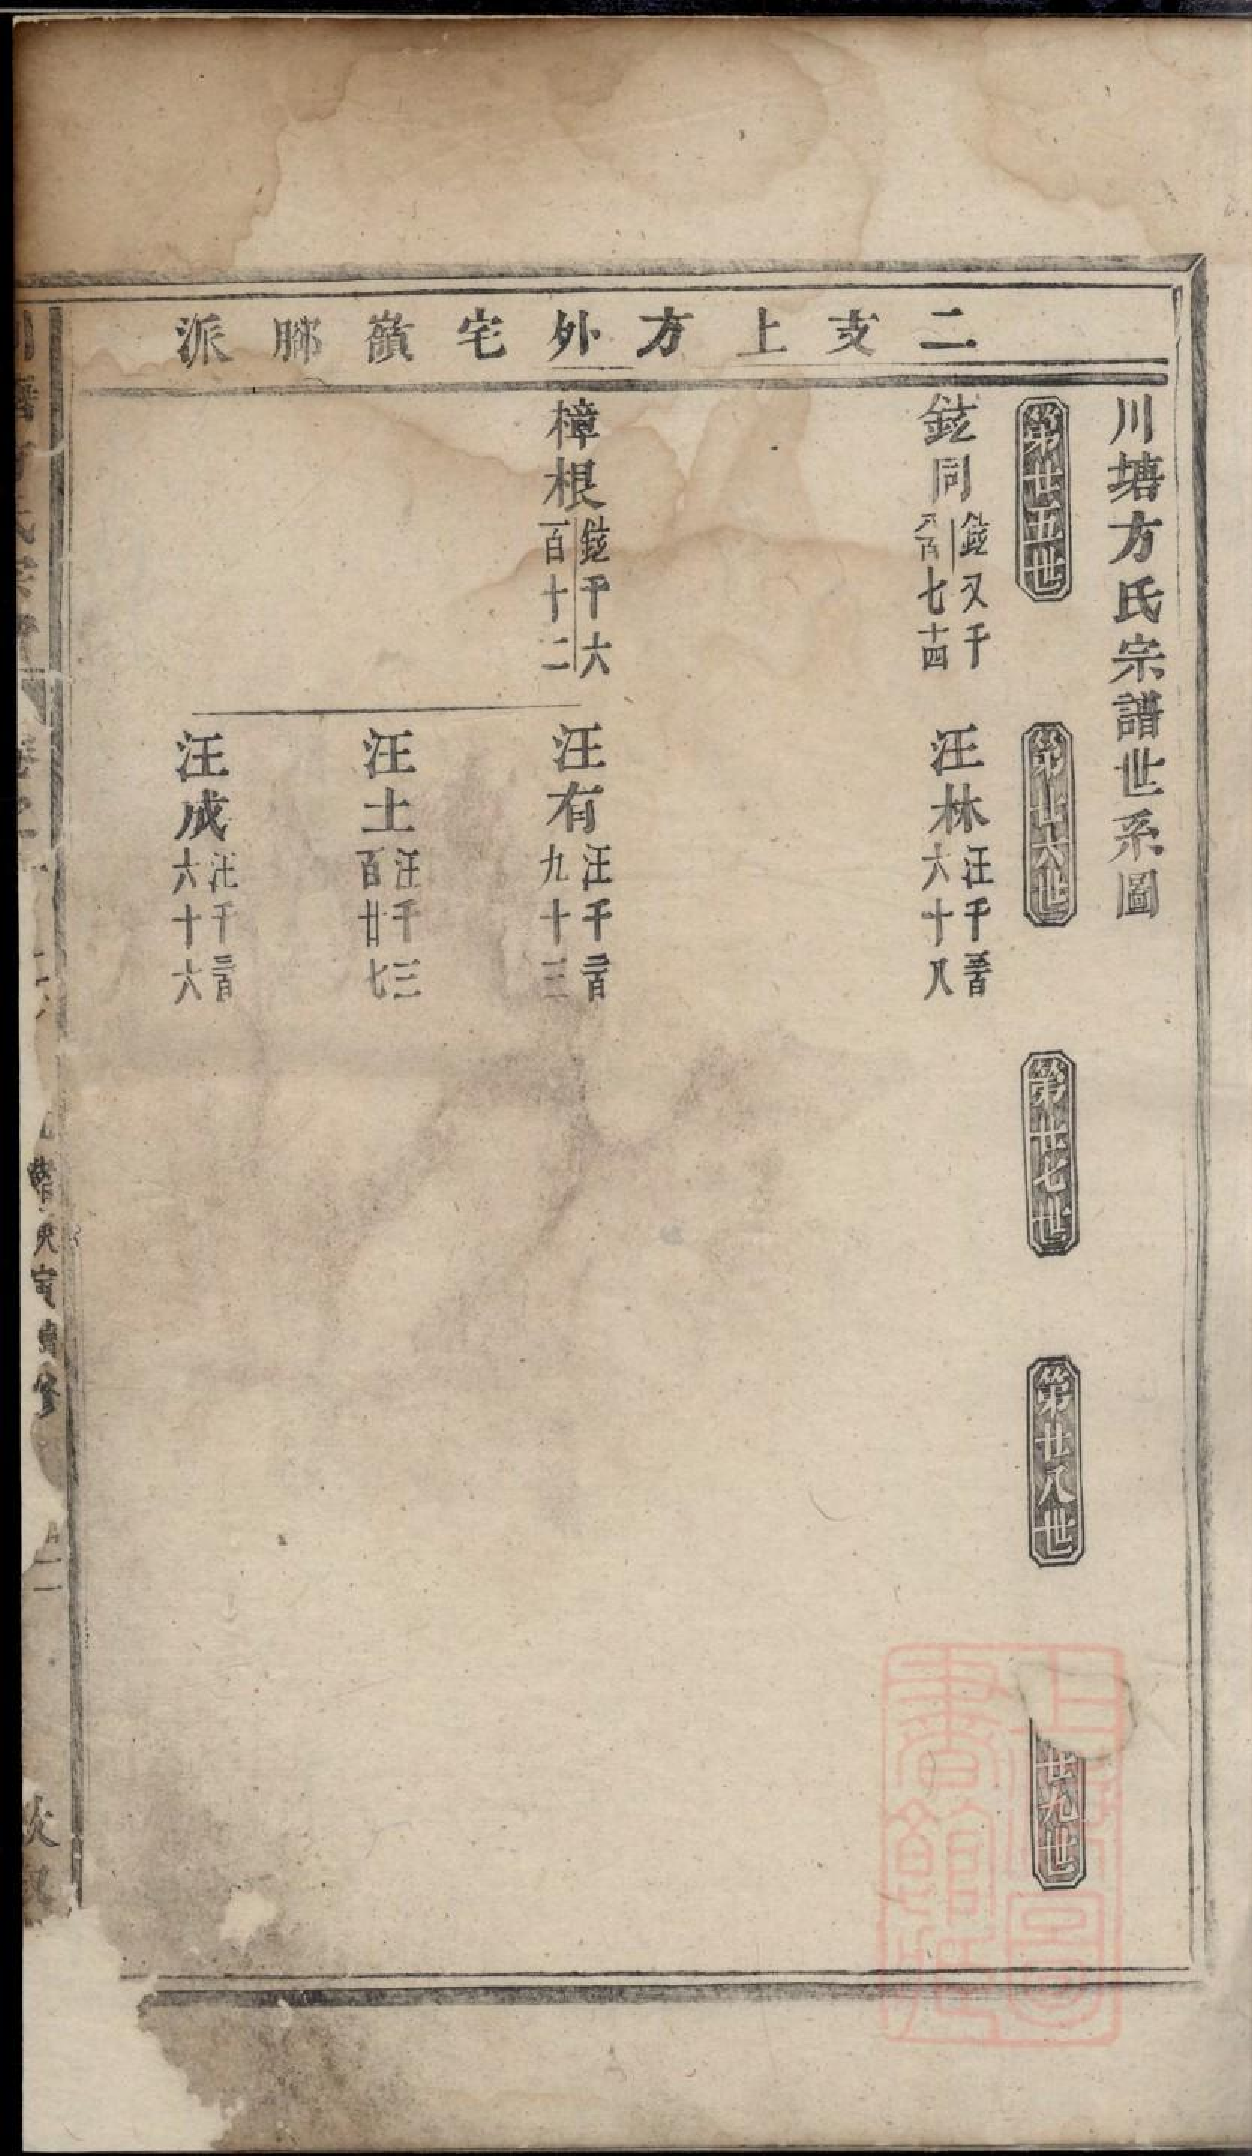 二支上方外宅嶺腳派
川塘方氏宗譜世系圖
第廿五世
第廿六世
第廿七世
第廿八世
廿九世
鉉同
鉉又千
八百七十四
汪林
汪千
六十八
樟根
鉉千六
百十二
汪有
汪千二百
九十三
汪土
汪千三
百廿七
汪成
汪千二百
六十六
上海圖
書館藏